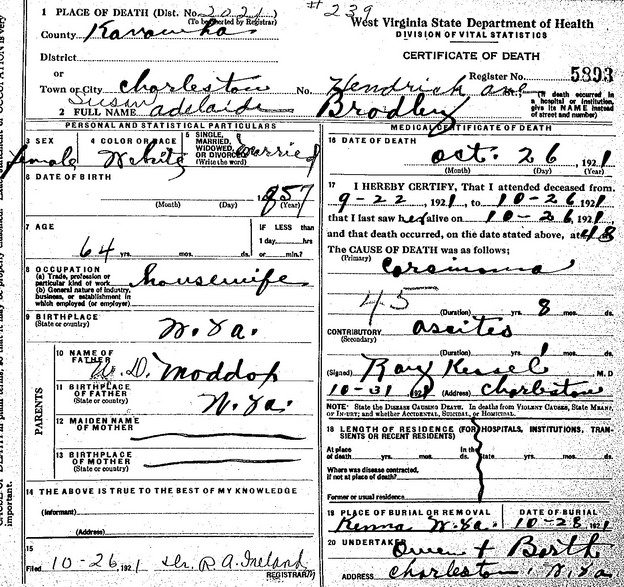 # 239
1 PLACE OF DEATH (Dist. No. 2021
(To be inserted by Registrar)
County Kanawha
District
or
Town or City Charleston No. Hendrick ave
Susan
2 FULL NAME adelaide Brodley
West Virginia State Department of Health
DIVISION OF VITAL STATISTICS
CERTIFICATE OF DEATH
Register No. 5893
(If death occurred in a hospital or institution, give its NAME instead of street and number)
PERSONAL AND STATISTICAL PARTICULARS
3 SEX female
4 COLOR OR RACE White
5 SINGLE, MARRIED, WIDOWED, OR DIVORCED (Write the word) married
6 DATE OF BIRTH
1857
(Month) (Day) (Year)
7 AGE
64 yrs. mos. ds.
IF LESS than
1 day ... hrs
or ... min.?
8 OCCUPATION
(a) Trade, profession or particular kind of work housewife
(b) General nature of industry, business, or establishment in which employed (or employer)
9 BIRTHPLACE
(State or country) W. Va.
PARENTS
10 NAME OF FATHER W. D. Moddop
11 BIRTHPLACE OF FATHER
(State or country) W. Va.
12 MAIDEN NAME OF MOTHER
13 BIRTHPLACE OF MOTHER
(State or country)
14 THE ABOVE IS TRUE TO THE BEST OF MY KNOWLEDGE
(Informant)
(Address)
15
Filed 10-26, 1921 Dr. R. A. Ireland
REGISTRAR
MEDICAL CERTIFICATE OF DEATH
16 DATE OF DEATH
Oct. 26, 1921
(Month) (Day) (Year)
17 I HEREBY CERTIFY, That I attended deceased from
9-22, 1921, to 10-26, 1921,
that I last saw her alive on 10-26, 1921,
and that death occurred, on the date stated above, at
The CAUSE OF DEATH was as follows:
(Primary) Carsinoma
45
(Duration) yrs. 8 mos. ds.
CONTRIBUTORY ascites
(Secondary)
(Duration) yrs. 1 mos. ds.
(Signed) Ray Kessel, M. D
10-31, 1921 (Address) Charleston
NOTE: State the DISEASE CAUSING DEATH. In deaths from VIOLENT CAUSES, State MEANS OF INJURY; and whether ACCIDENTAL, SUICIDAL, or HOMICIDAL.
18 LENGTH OF RESIDENCE (FOR HOSPITALS, INSTITUTIONS, TRANSIENTS OR RECENT RESIDENTS)
At place of death yrs. mos. ds. In the State yrs. mos. ds.
Where was disease contracted, if not at place of death?
Former or usual residence
19 PLACE OF BURIAL OR REMOVAL
Kenna W. Va.
DATE OF BURIAL
10-28, 1921
20 UNDERTAKER
Owen & Barth
ADDRESS Charleston, W. Va
important.